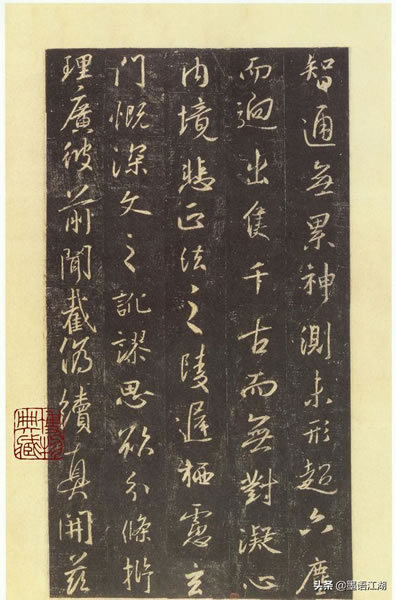 智通無累神測未形超六塵
而迥出隻千古而無對凝心
内境悲正法之陵遲栖慮玄
門慨深文之訛謬思欲分條析
理廣彼前聞截偽續真開兹
头条 @墨语江湖